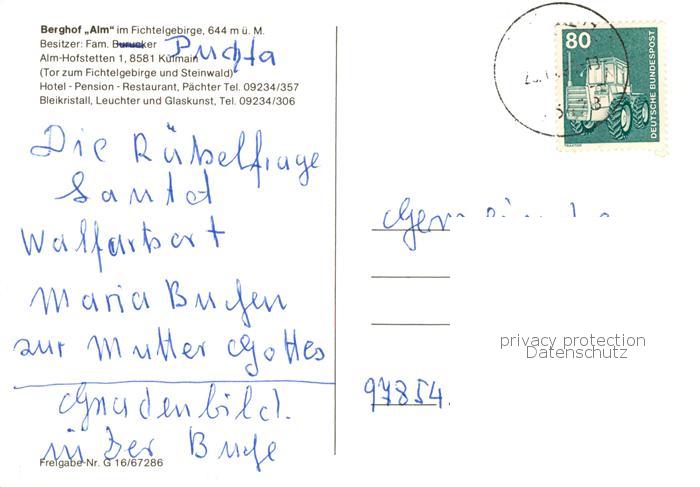 Berghof „Alm“ im Fichtelgebirge, 644 m ü. M.
Besitzer: Fam. Burucker Puchta
Alm-Hofstetten 1, 8581 Kulmain
(Tor zum Fichtelgebirge und Steinwald)
Hotel - Pension - Restaurant, Pächter Tel. 09234/357
Bleikristall, Leuchter und Glaskunst, Tel. 09234/306
80
DEUTSCHE BUNDESPOST
TRAKTOR
Die Rätzelfrage
lautet
Walfartsort
Maria Buchen
zur Mutter Gottes
Gnadenbild.
in der Buche
97854.
privacy protection
Datenschutz
Freigabe-Nr. G 16/67286